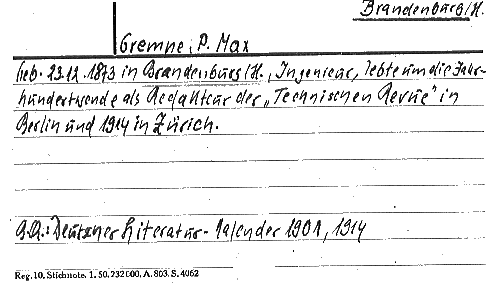 Brandenburg/H.
Grempe, P. Max
geb. 23.12.1873 in Brandenburg/H., Ingenieur, lebte um die Jahr-
hundertwende als Redakteur der „Technischen Revue" in
Berlin und 1914 in Zürich.
Deutscher Literatur-Kalender 1901, 1914
Reg. 10. Stichnote. 1. 50. 232 000. A. 803. S. 4062